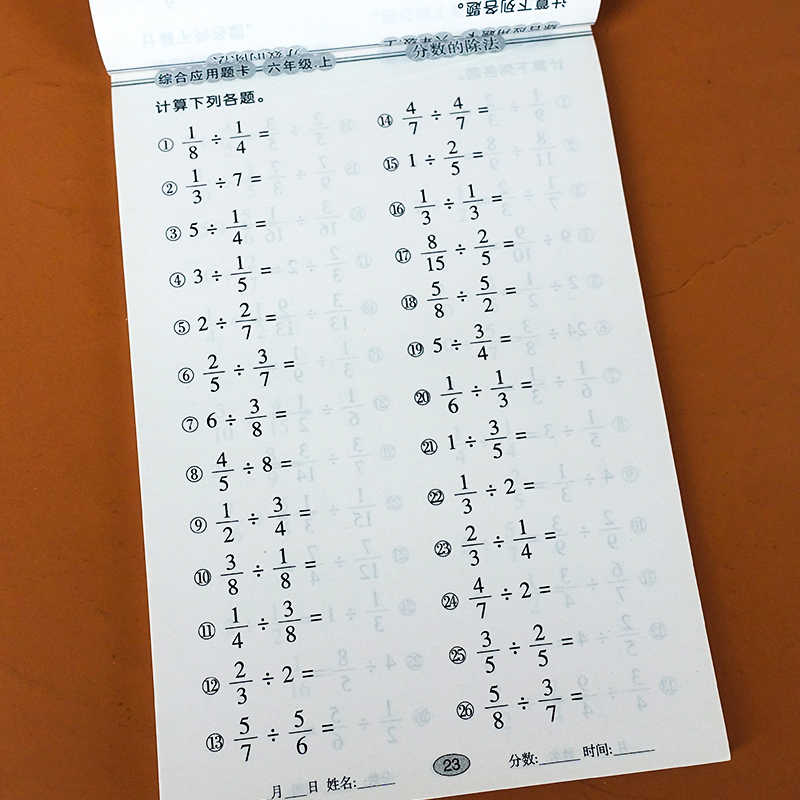 计算下列各题。
综合应用题卡 六年级.上
分数的除法
计算下列各题。
① 1/8 ÷ 1/4 =
② 1/3 ÷ 7 =
③ 5 ÷ 1/4 =
④ 3 ÷ 1/5 =
⑤ 2 ÷ 2/7 =
⑥ 2/5 ÷ 3/7 =
⑦ 6 ÷ 3/8 =
⑧ 4/5 ÷ 8 =
⑨ 1/2 ÷ 3/4 =
⑩ 3/8 ÷ 1/8 =
⑪ 1/4 ÷ 3/8 =
⑫ 2/3 ÷ 2 =
⑬ 5/7 ÷ 5/6 =
⑭ 4/7 ÷ 4/7 =
⑮ 1 ÷ 2/5 =
⑯ 1/3 ÷ 1/3 =
⑰ 8/15 ÷ 2/5 =
⑱ 5/8 ÷ 5/2 =
⑲ 5 ÷ 3/4 =
⑳ 1/6 ÷ 1/3 =
㉑ 1 ÷ 3/5 =
㉒ 1/3 ÷ 2 =
㉓ 2/3 ÷ 1/4 =
㉔ 4/7 ÷ 2 =
㉕ 3/5 ÷ 2/5 =
㉖ 5/8 ÷ 3/7 =
月___日 姓名:____ 23 分数:____ 时间:____